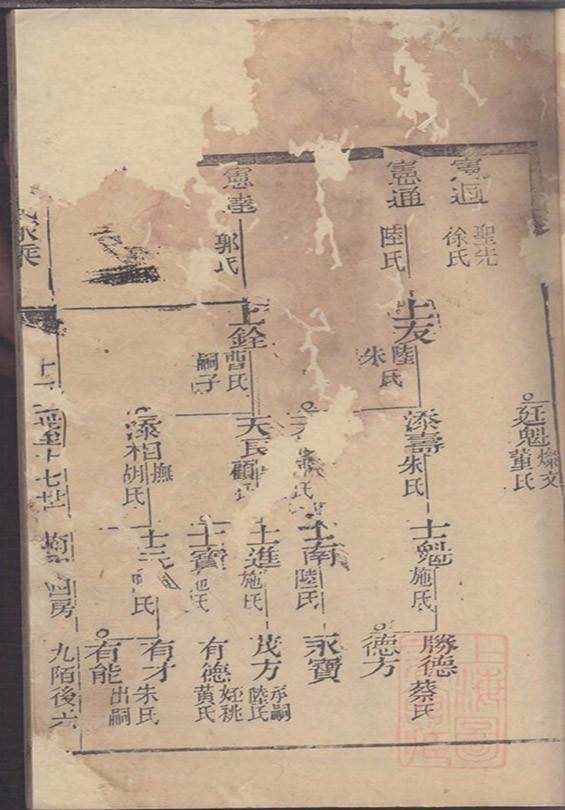 憲
聖先
徐氏
憲通
陸氏
憲達
郭氏
士友
陸氏
朱
士銓
曹氏
嗣子
廷魁
燦文
董氏
添壽
朱氏
天長
顧
添相
撫
胡氏
士魁
施氏
士南
陸氏
士進
施氏
士寶
氏
士元
氏
勝德
蔡氏
德方
永寶
茂方
承嗣
陸氏
有德
兼祧
黃氏
有才
朱氏
有能
出嗣
家乘
世至十七世
四房
九陌後六
上海圖